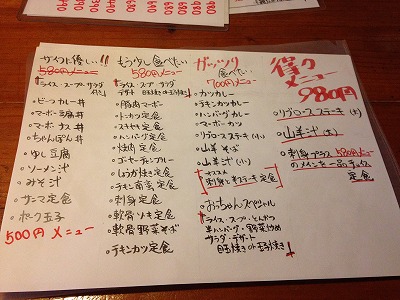 サイフに優しい!!
580円メニュー
ライス・スープ・サラダ
付き
○ビーフカレー丼
○マーボー豆腐丼
○マーボーナス丼
○ちゃんぽん丼
○ゆし豆腐
○ソーメン汁
○みそ汁
○サンマ定食
○ポーク玉子
500円メニュー
もう少し食べたい
580円メニュー
ライス・スープ・サラダ
デザート 目玉焼きor玉子焼き
○豚肉マーボー
○トンカツ定食
○スキヤキ定食
○ハンバーグ定食
○焼肉定食
○ゴーヤーチャンプルー
○しょうが焼き定食
○チキン南蛮定食
○刺身定食
○軟骨ソーキ定食
○軟骨野菜そば
○チキンカツ定食
ガッツリ
食べたい
700円メニュー
○カツカレー
○チキンカツカレー
○ハンバーグカレー
○マーボーカツ
○リブロースステーキ(小)
○山羊そば
○山羊汁(小)
オススメ
刺身と半ステーキ定食
○おっちゃんスペシャル
ライス・スープ・とんかつ
半ハンバーグ・野菜炒め
サラダ・デザート
目玉焼きor玉子焼き
得々
メニュー
980円
○リブロースステーキ(大)
○山羊汁(大)
○刺身プラス580円メニュー
のメインを一品チョイス
定食